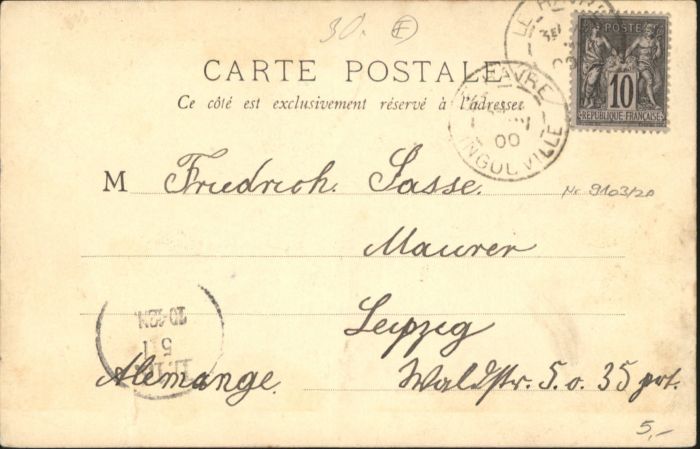 30. E
CARTE POSTALE
Ce côté est exclusivement réservé à l'adresse
POSTE
10
RÉPUBLIQUE FRANÇAISE
LE HAVRE
HAVRE
00
INGOUVILLE
M Friedrich. Sasse.
Nr 9103/20
Maurer
Leipzig
Alemange. Waldstr. 5. o. 35 prt.
5,-